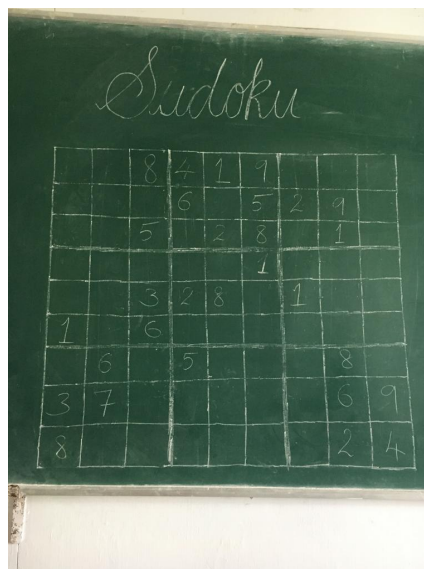 Sudoku
8 4 1 9
6 5 2 9
5 2 8 1
1
3 2 8 1
1 6
6 5 8
3 7 6 9
8 2 4